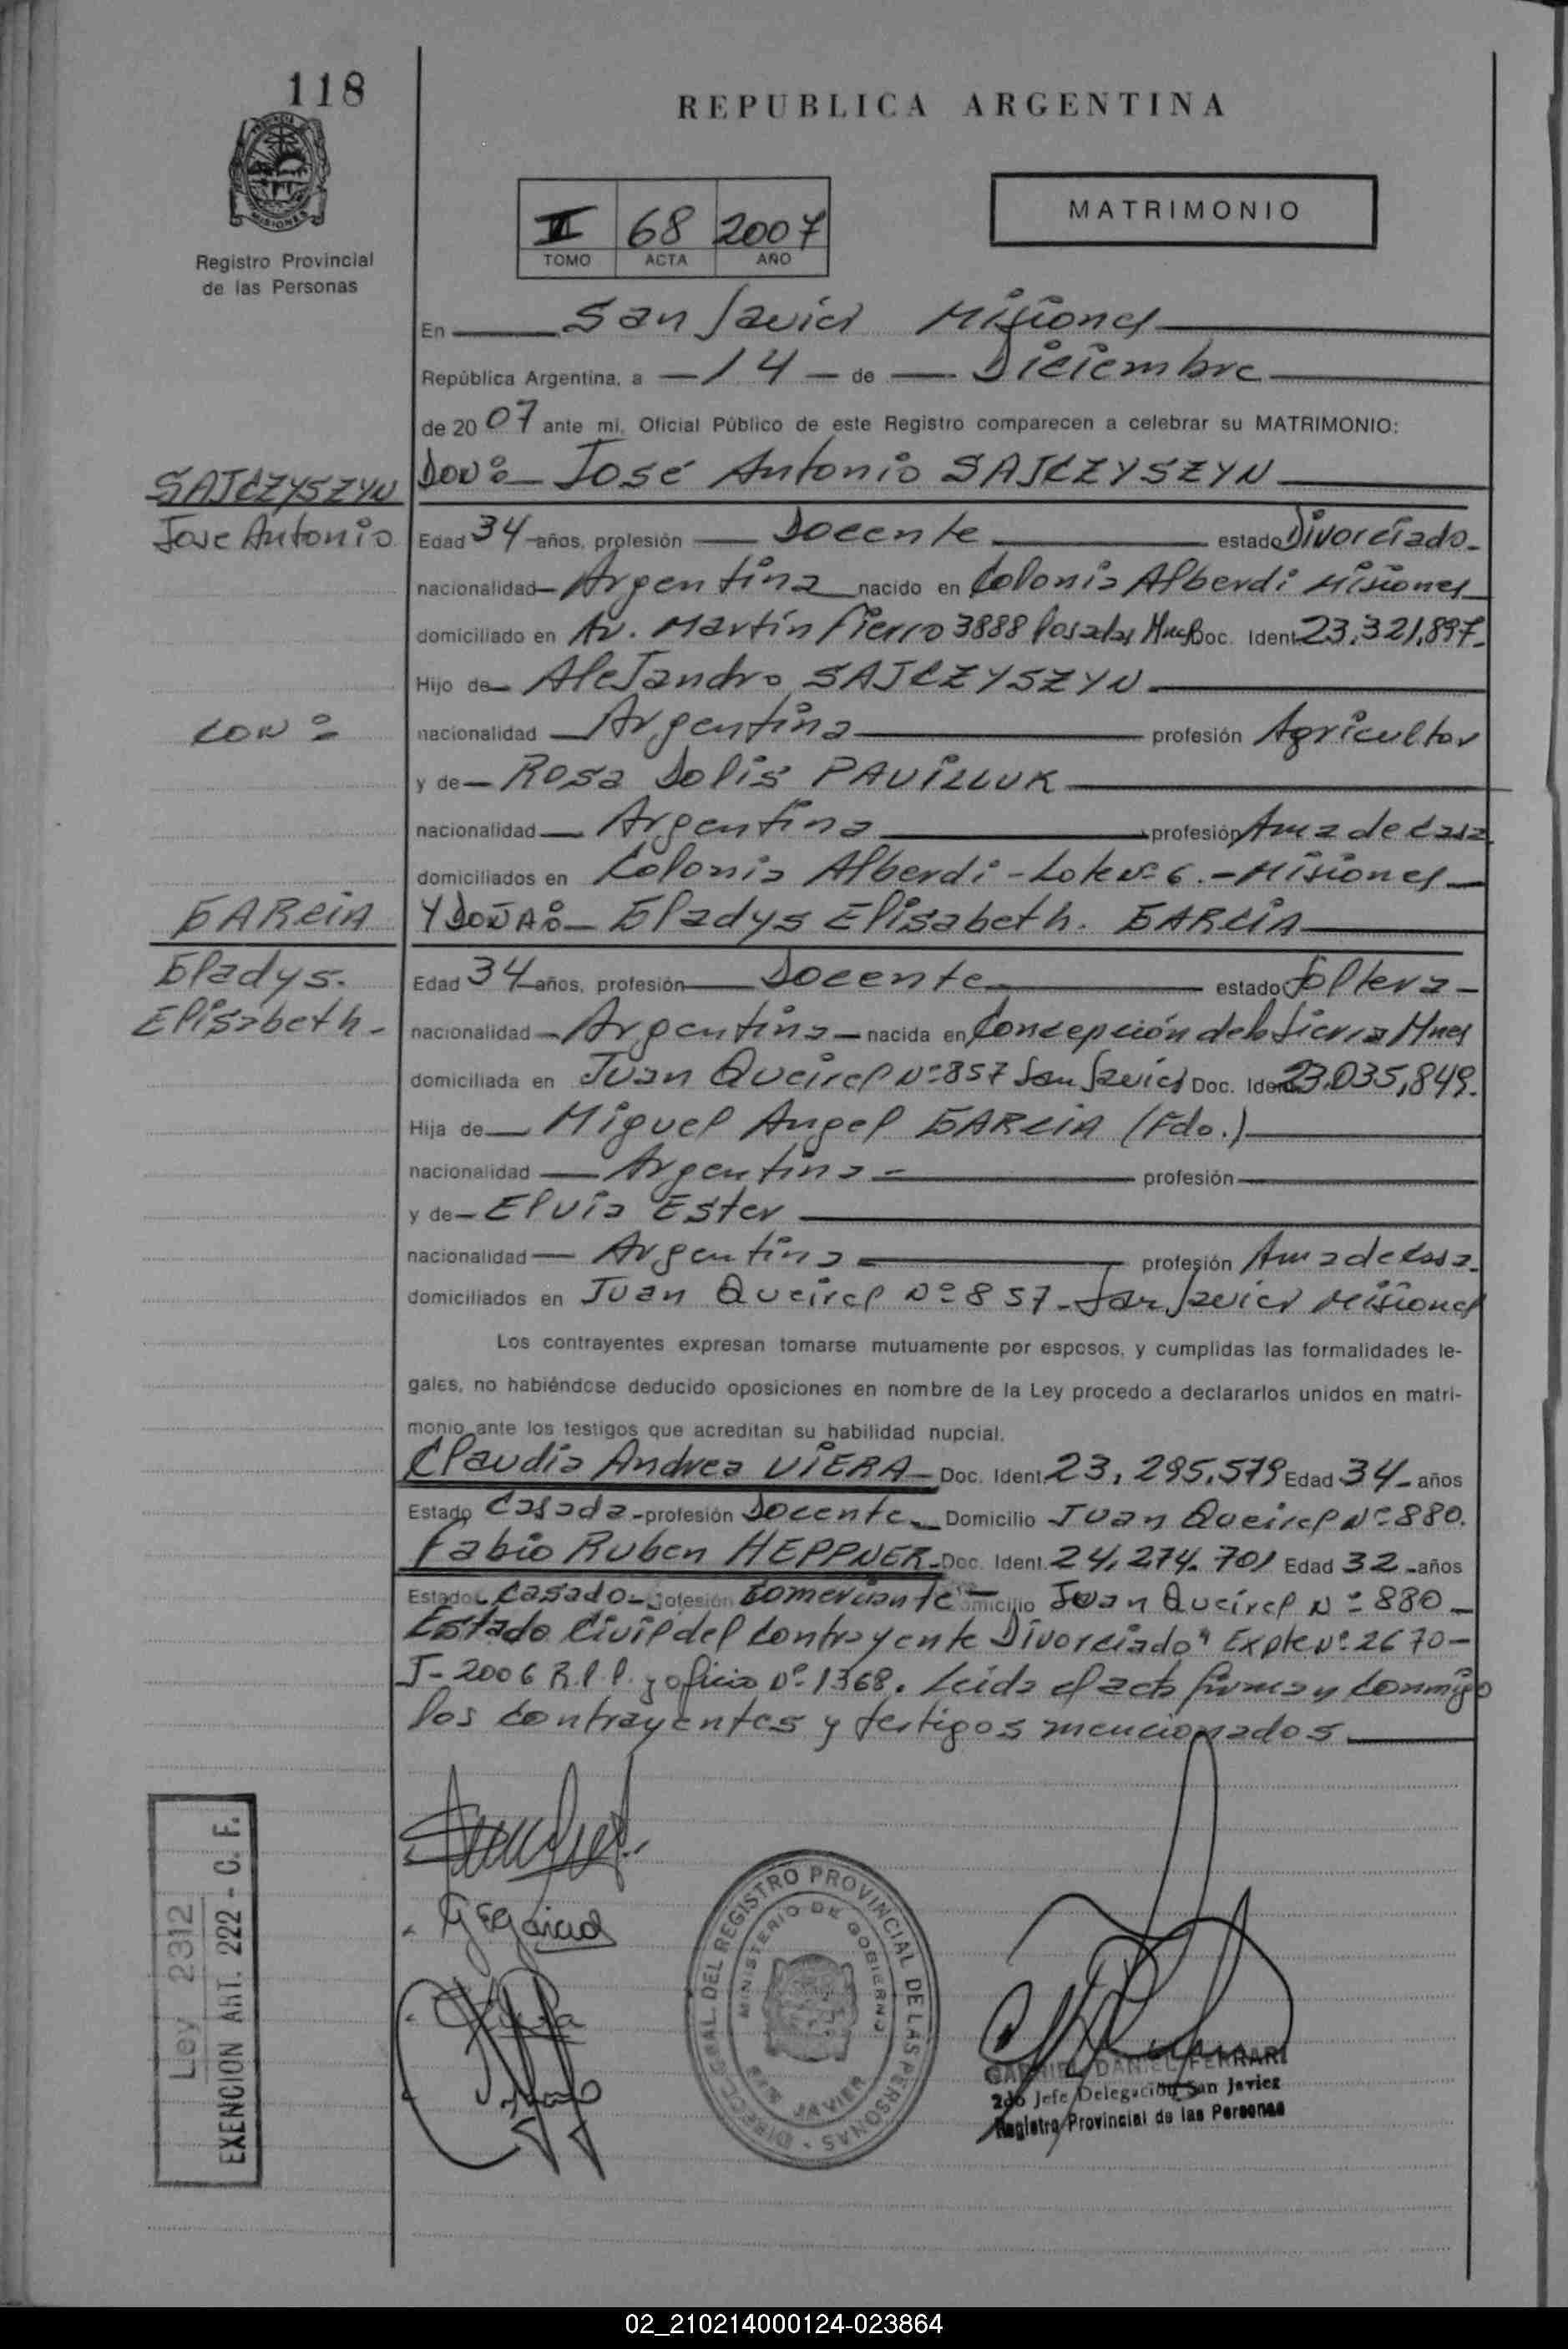 118
REPUBLICA ARGENTINA
PROVINCIA DE
MISIONES
Registro Provincial
de las Personas
II 68 2007
TOMO ACTA AÑO
MATRIMONIO
En San Javier Misiones
República Argentina, a 14 de Diciembre
de 2007 ante mi, Oficial Público de este Registro comparecen a celebrar su MATRIMONIO:
SAJCZYSZYN
Jose Antonio
DON: José Antonio SAJCZYSZYN
Edad 34 años, profesión Docente estado Divorciado
nacionalidad Argentina nacido en Colonia Alberdi Misiones
domiciliado en Av. Martín Fierro 3888 Posadas Mnes Doc. Ident. 23,321,897.
Hijo de AleJandro SAJCZYSZYN
CON:
nacionalidad Argentina profesión Agricultor
y de Rosa Dolis PAVILUK
nacionalidad Argentina profesión Ama de casa
domiciliados en Colonia Alberdi - Lote Nº 6. - Misiones
GARCIA
Gladys.
Elisabeth.
Y DOÑA: Gladys Elisabeth. GARCIA
Edad 34 años, profesión Docente estado Soltera
nacionalidad Argentina nacida en Concepción de la Sierra Mnes
domiciliada en Juan Queirel Nº 857 San Javier Doc. Ident. 23,035,849.
Hija de Miguel Angel GARCIA (Fdo.)
nacionalidad Argentina profesión
y de Elvia Ester
nacionalidad Argentina profesión Ama de casa.
domiciliados en Juan Queirel Nº 857 - San Javier Misiones
Los contrayentes expresan tomarse mutuamente por esposos, y cumplidas las formalidades le-
gales, no habiéndose deducido oposiciones en nombre de la Ley procedo a declararlos unidos en matri-
monio ante los testigos que acreditan su habilidad nupcial.
Claudia Andrea VIERA Doc. Ident. 23,295,579 Edad 34 años
Estado Casada profesión Docente Domicilio Juan Queirel Nº 880.
Fabio Ruben HEPPNER Doc. Ident. 24,274.701 Edad 32 años
Estado Casado profesión Comerciante Domicilio Juan Queirel Nº 880
Estado Civil del Contrayente Divorciado" Expte Nº 2670-
J-2006 R.P.P. y oficio Nº 1368. Leida el acta firman conmigo
los contrayentes y testigos mencionados
Ley 2312
EXENCION ART. 222 - C. F.
DIREC. GRAL. DEL REGISTRO PROVINCIAL DE LAS PERSONAS
MINISTERIO DE GOBIERNO
SAN JAVIER
GABRIEL DANIEL FERRARI
2do Jefe Delegación San Javier
Registro Provincial de las Personas
02_210214000124-023864